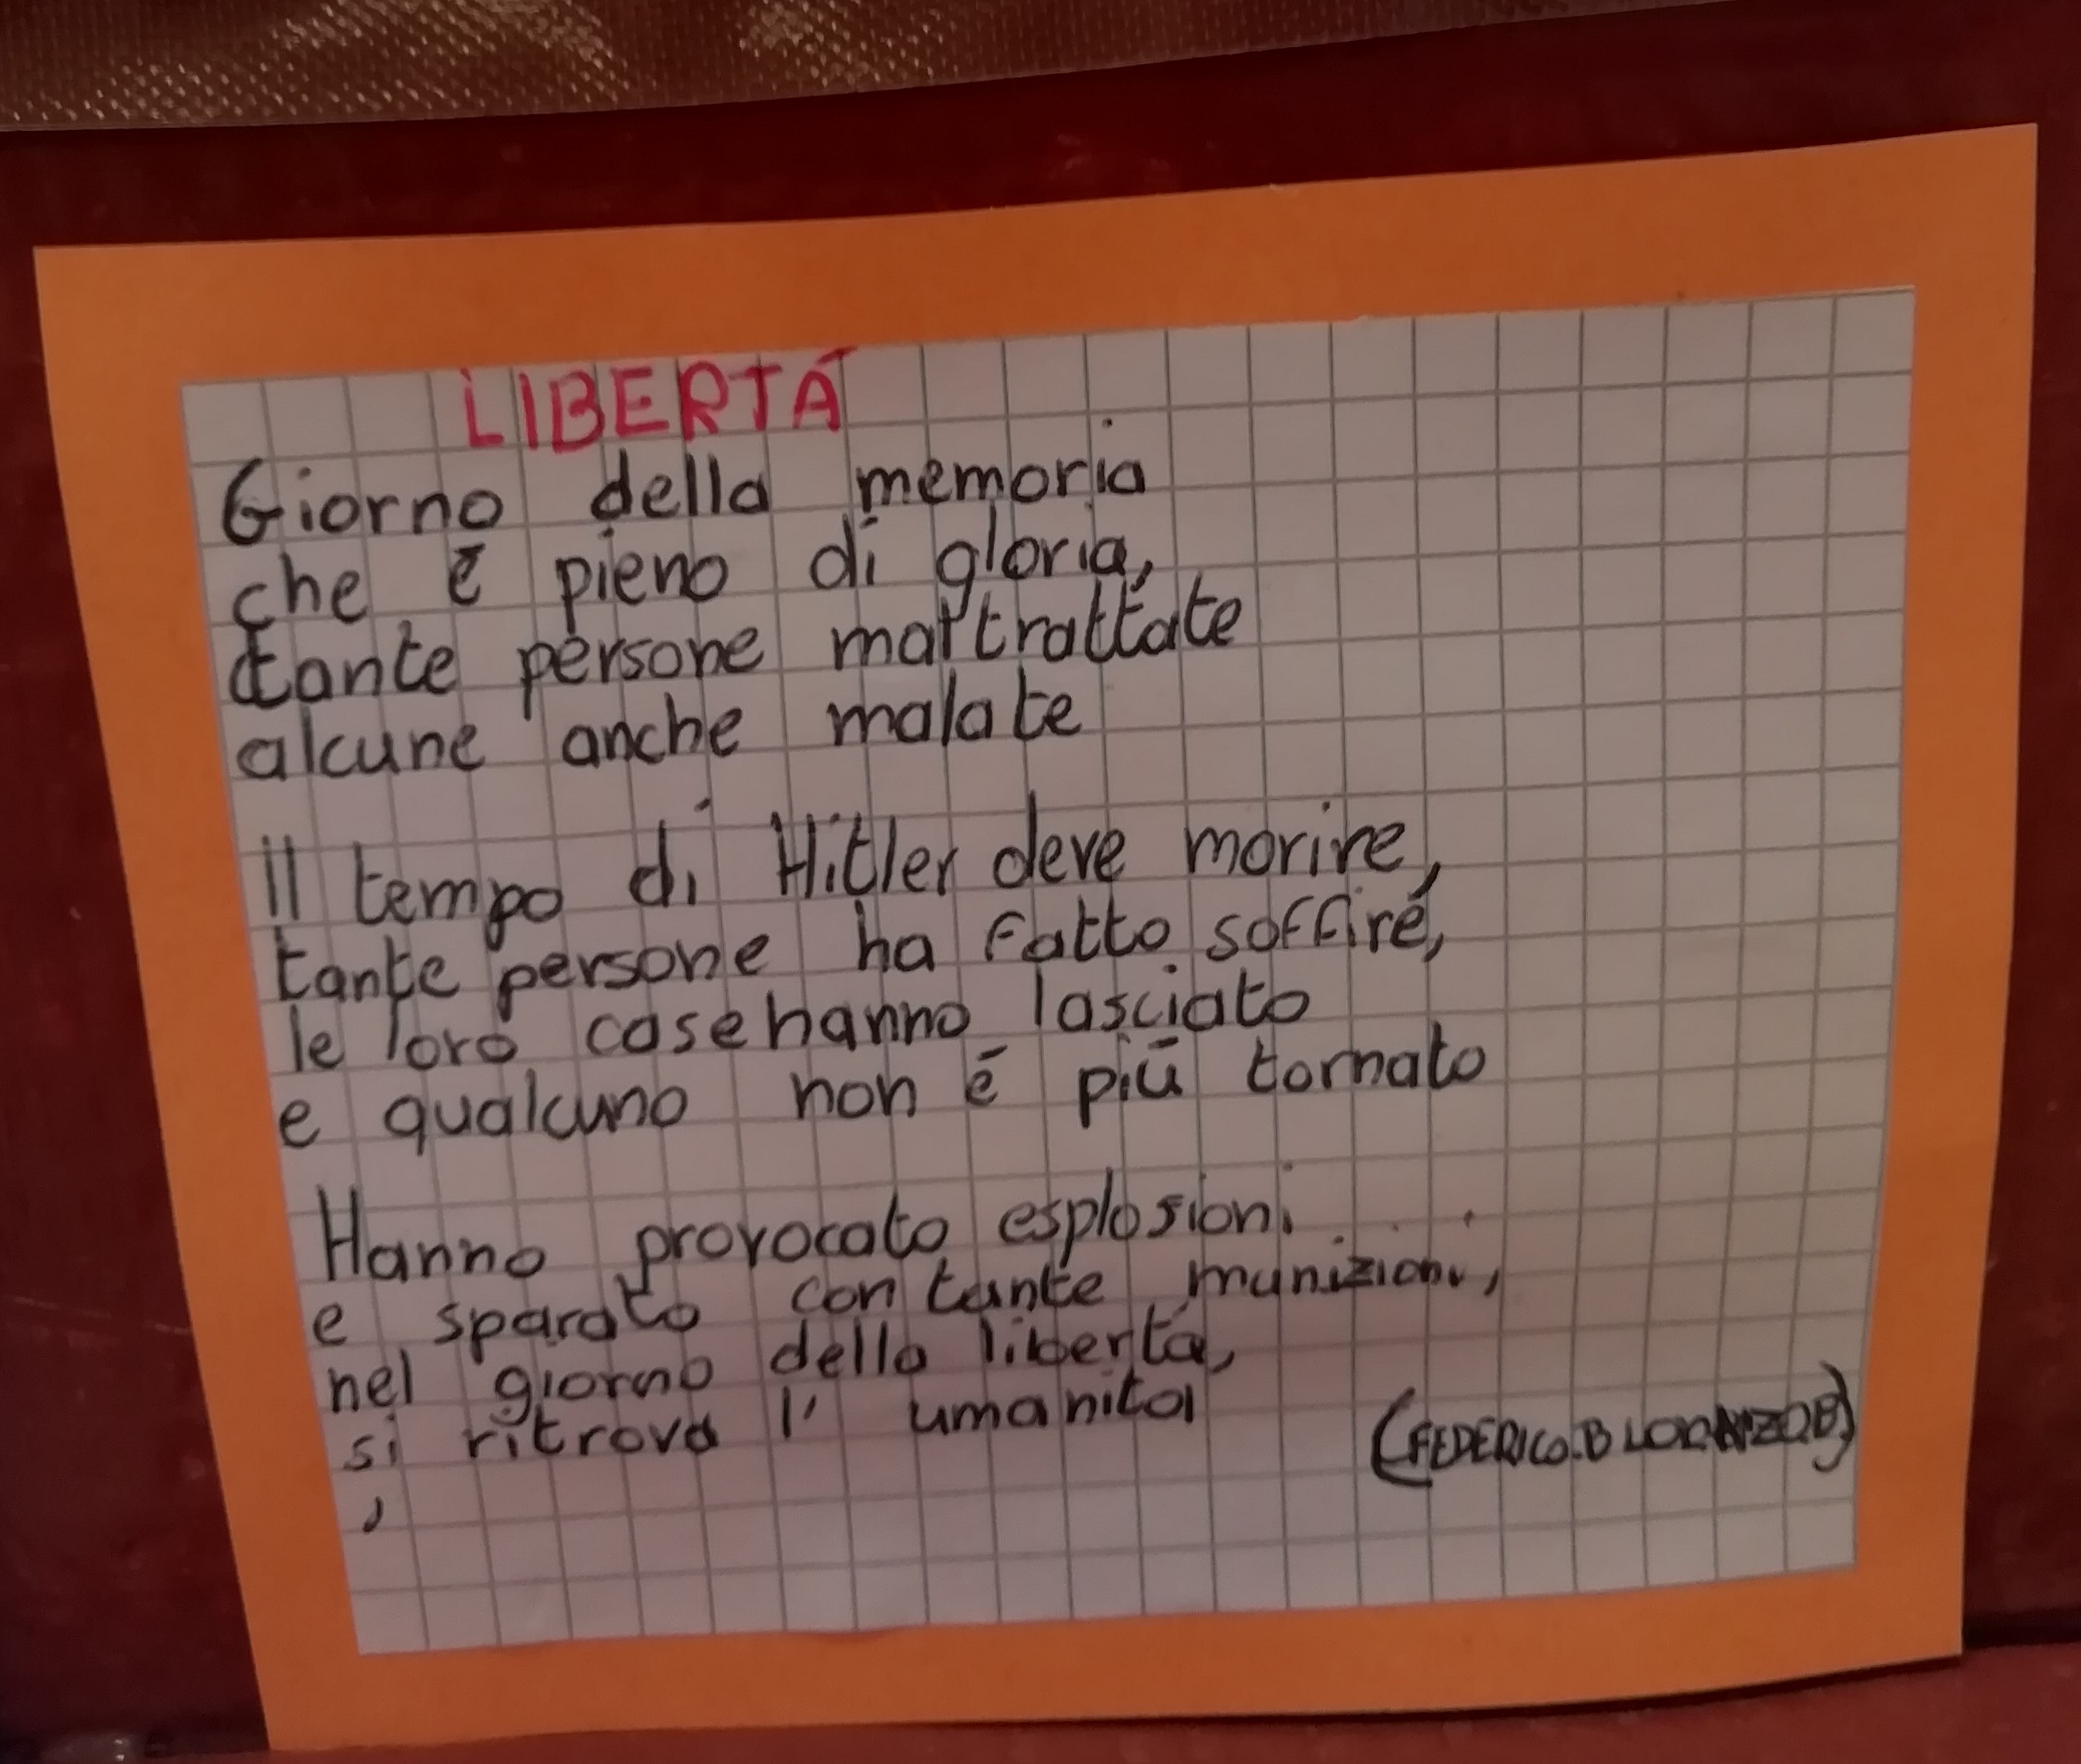 LIBERTÀ
Giorno della memoria
che è pieno di gloria,
tante persone maltrattate
alcune anche malate
Il tempo di Hitler deve morire,
tante persone ha fatto soffire,
le loro case hanno lasciato
e qualcuno non è più tornato
Hanno provocato esplosioni
e sparato con tante munizioni,
nel giorno della libertà,
si ritrova l' umanità
(FEDERICO.B LORENZO.B)